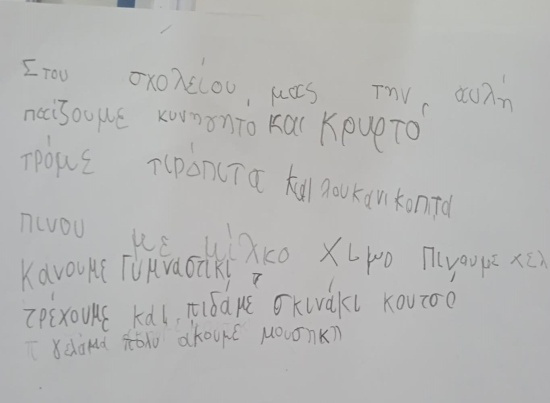 Στου σχολείου μας την αυλή
παίζουμε κυνηγητό και κρυφτό
τρόμε τιρόπιτα και λουκανικοπτα
πινου με μίλκο χιμο πιναυμε χελ
κάνουμε Γυμναστικί τ
τρέχουμε και πιδάμε σκινάκι κουτσό
τ γελάμα πολυ άκουμε μουσηκη